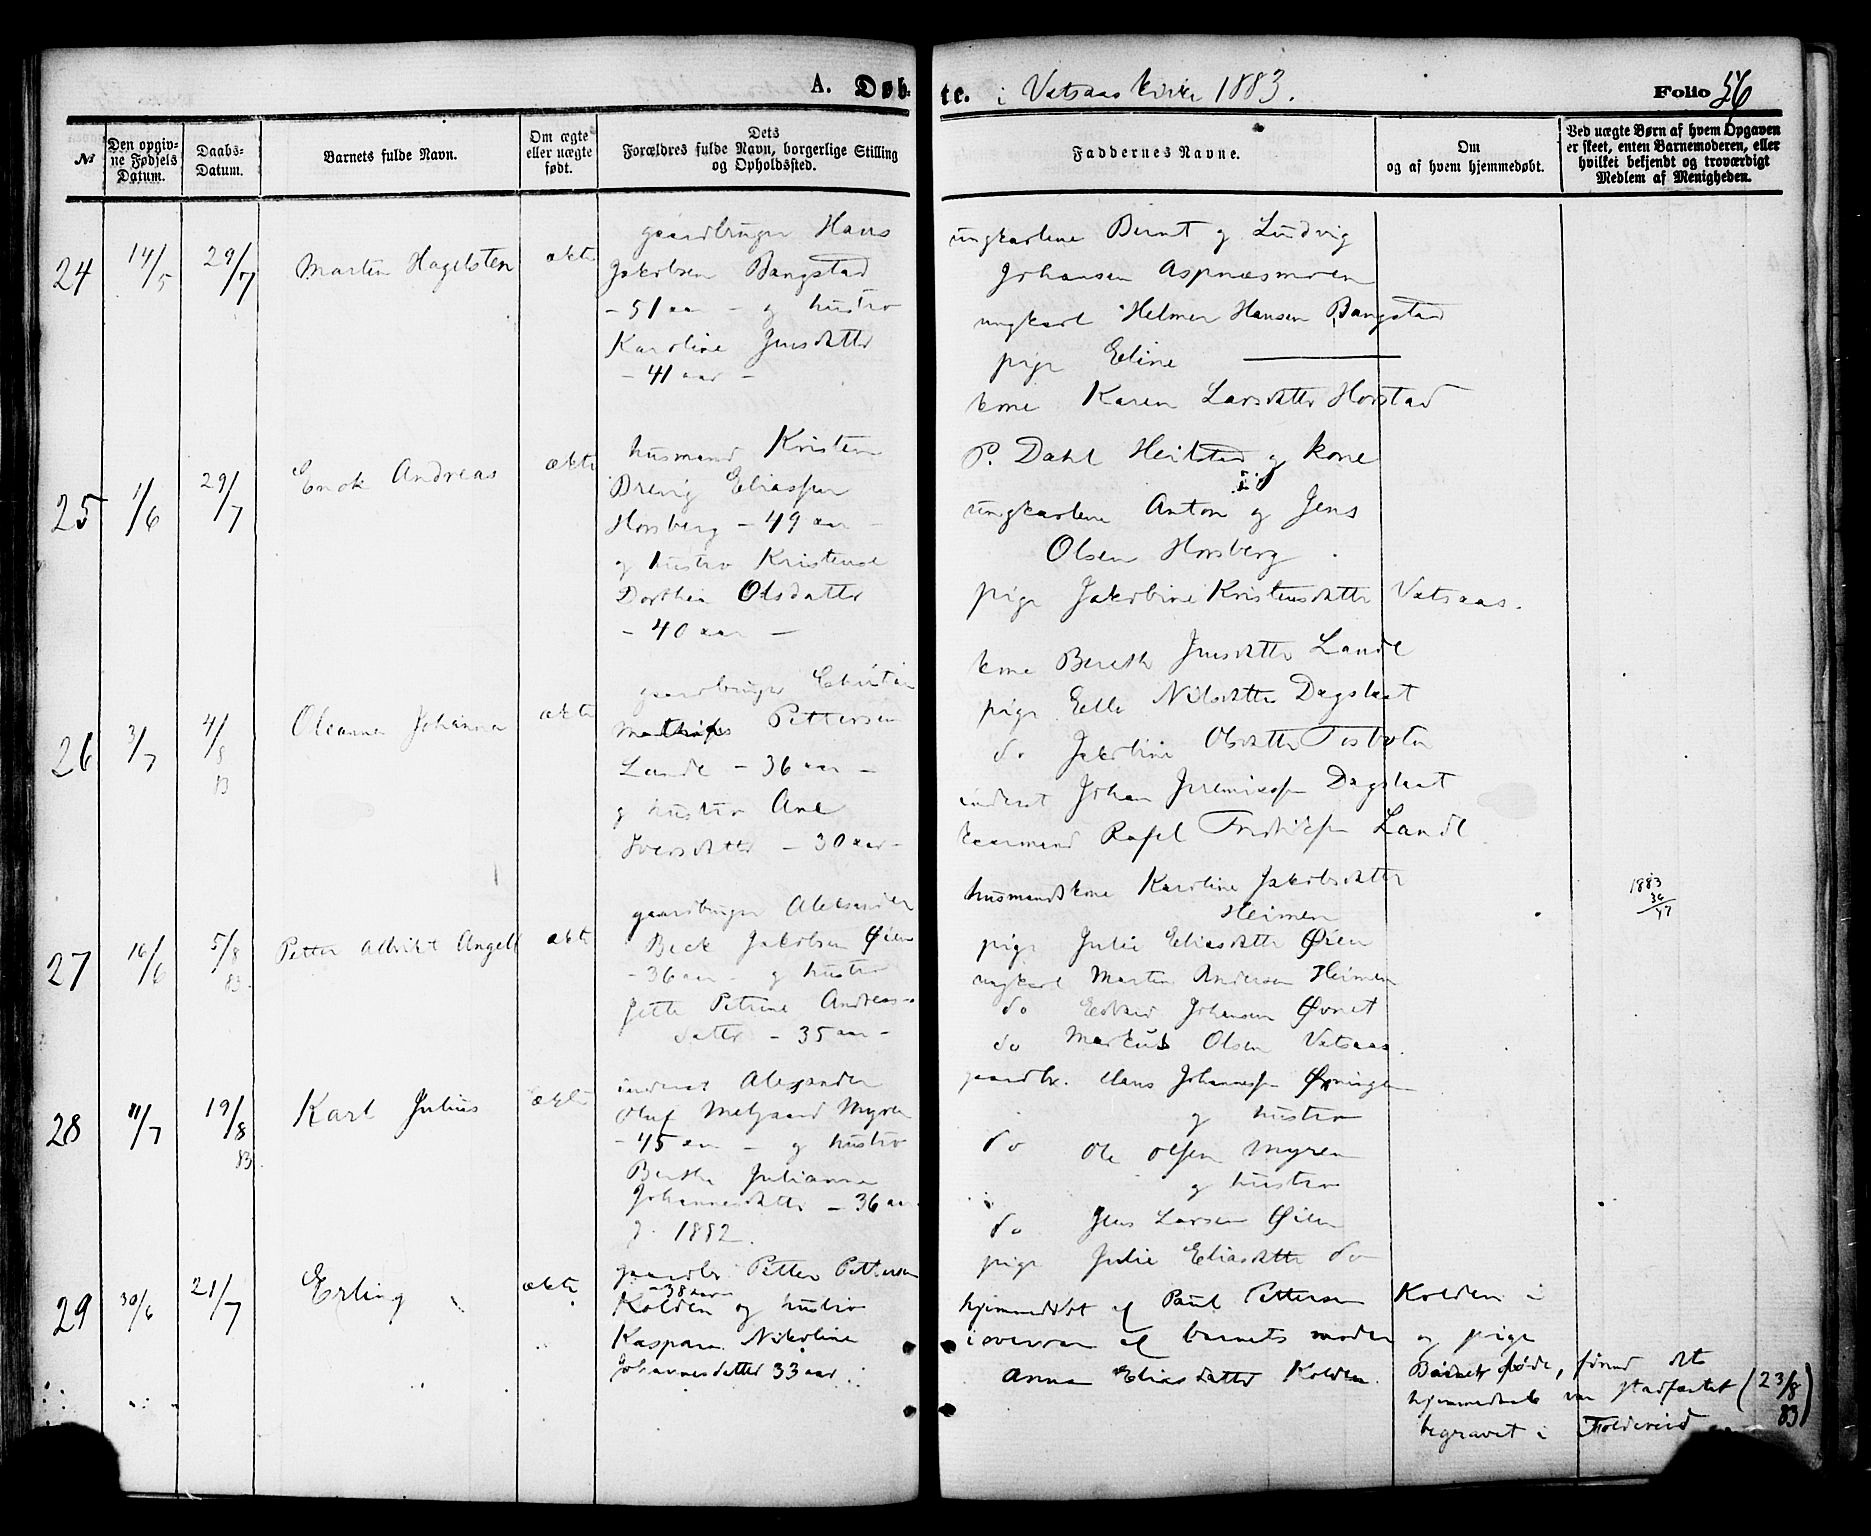 A. Døb-
te. i Vatsaas Kirke 1883.
Folio 56
No
Den opgiv-
ne Fødsels
Datum.
Daabs-
Datum.
Barnets fulde Navn.
Om ægte
eller uægte
født.
Dets
Forældres fulde Navn, borgerlige Stilling
og Opholdssted.
Faddernes Navne.
Om
og af hvem hjemmedøbt.
Ved uægte Børn af hvem Opgaven
er skeet, enten Barnemoderen, eller
hvilket bekjendt og troværdigt
Medlem af Menigheden.
24
14/5
29/7
Martin Hagelsten
ækte
gaardbruger Hans
Jakobsen Bangstad
- 51 aar - og hustro
Karoline Jensdatter
- 41 aar -
ungkarlene Bernt og Ludvig
Johansen Aspnæsmoen
ungkarl Helmer Hansen Bangstad
pige Eline ———
kone Karen Larsdatter Horstad
25
1/6
29/7
Enok Andreas
ækte
husmand Kristen
Drevig Eliassen
Horsberg - 49 aar -
og hustro Kristense
Dorthea Olsdatter
- 40 aar -
P. Dahl Heilstad og kone
ungkarlene Anton og Jens
Olsen Horsberg.
pige Jakobine Kristensdatter Vatsaas.
26
3/7
4/8
83
Oleanna Johanna
ækte
gaardbruger Christian
Mathias Pettersen
Lande - 36 aar -
og hustro Ane
Iversdatter - 30 aar -
kone Bereth Jensdatter Lande
pige Elle Nilsdatter Dagslaat
do Jakobine Olsdatter
inderst Johan Jeremiassen Dagslaat
kaarmand Rafel Fredriksen Lande
27
16/6
5/8
83.
Petter Albrikt Angell
ækte
gaardbruger Aleksander
Beck Jakobsen Øien
- 36 aar - og hustro
Jette Petrine Andreas-
datter - 35 aar -
husmandskone Karoline Jakobsdatter
Heimen
pige Julie Eliasdatter Øien
ungkarl Martin Andersen Heimen
do Edvard Johansen Øvnet
do Markus Olsen Vatsaas.
1883
36
47
28
11/7
19/8
83.
Karl Julius
ækte
inderst Alexander
Oluf Melgaard Myren
- 45 aar - og hustro
Bertha Julianna
Johannesdatter - 36 aar
g. 1882.
gaardbr. Hans Johannessen
og hustro
do Ole Olsen Myren
og hustro
do Jens Larsen Øien
pige Julie Eliasdatter do
29
30/6
21/7
Erling
ækte
gaardbr. Petter Pettersen
- 38 aar -
Kolden og hustro
Kaspara Nikoline
Johannesdatter 33 aar
hjemmedøbt af Paul Pettersen Kolden i
overvær af barnets moder og pige
Anna Eliasdatter Kolden.
Barnet døde, førend det
hjemmedaab var stadfæstet (23/8
83)
begravet i Foldereid